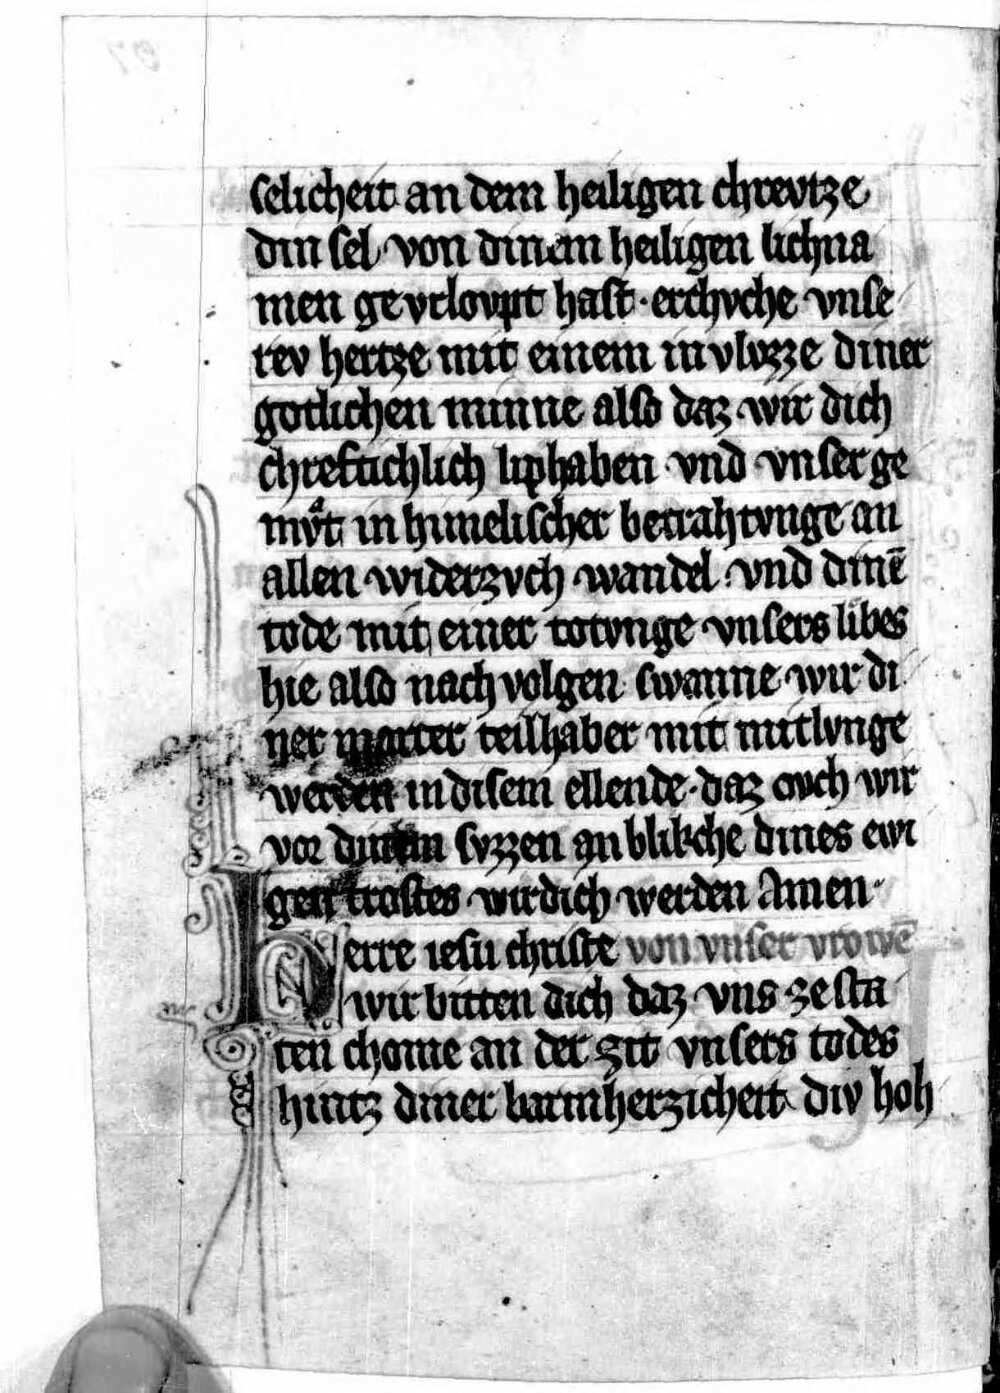 selicheit an dem heiligen chrevtze
din sel von dinem heiligen lichna
men gevrloupt hast · erchvche vnse
rev hertze mit einem invlvzze diner
gotlichen minne also daz wir dich
chreftichlich liphaben vnd vnser ge
mvͤt in himelischer betrahtvnge an
allen widerzvch wandel · vnd dinē
tode mit einer totvnge vnsers libes
hie also nach volgen swanne wir di
ner marter teilhaber mit mitlvnge
werden in disem ellende · daz ovch wir
vor dinem svzzen anblikche dines ewi
gen trostes wirdich werden Amen ·
Herre iesu christe von vnser vrowē
wir bitten dich daz vns ze sta
ten chome an der zit vnsers todes
hintz diner barmherzicheit div hoh